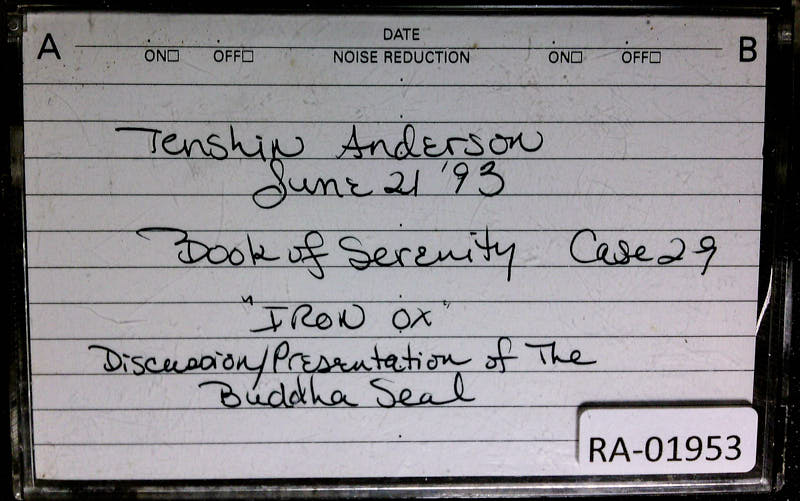 A DATE B
ON□ OFF□ NOISE REDUCTION ON□ OFF□
Tenshin Anderson
June 21 '93
Book of Serenity Case 29
"IRON OX"
Discussion/Presentation of The
Buddha Seal
RA-01953